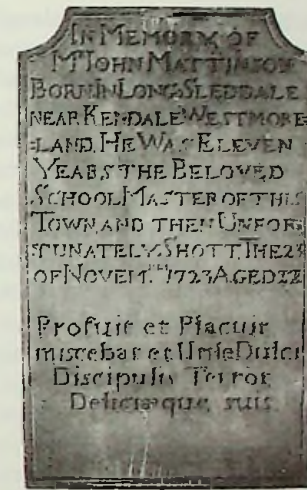 IN MEMORY OF
Mr JOHN MATTINSON
BORN IN LONG SLEDDALE
NEAR KENDALE WESTMORE
=LAND. HE WAS ELEVEN
YEARS THE BELOVED
SCHOOL MASTER OF THIS
TOWN AND THEN UNFOR
=TUNATELY SHOTT. THE 23
OF NOVEM. 1723 AGED 22
Profuit et Placuit
miscebat et Utile Dulci
Discipulis Terror
Deliciæque suis